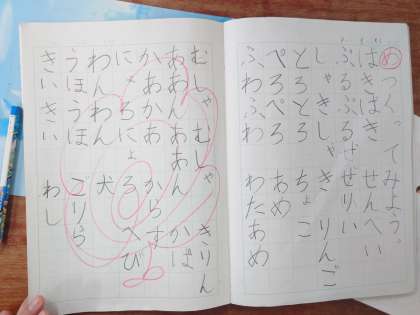 め つくってみよう。
ぱきぱき せんべい
ぷるぷる ぜりい
しゃきしゃき りんご
とろとろ ちょこ
ぺろぺろ あめ
ふわふわ わたあめ
むしゃむしゃ きりん
ああんああん かば
かあかあ からす
にょろにょろ へび
わんわん 犬
うほうほ ごりら
きいきい わし